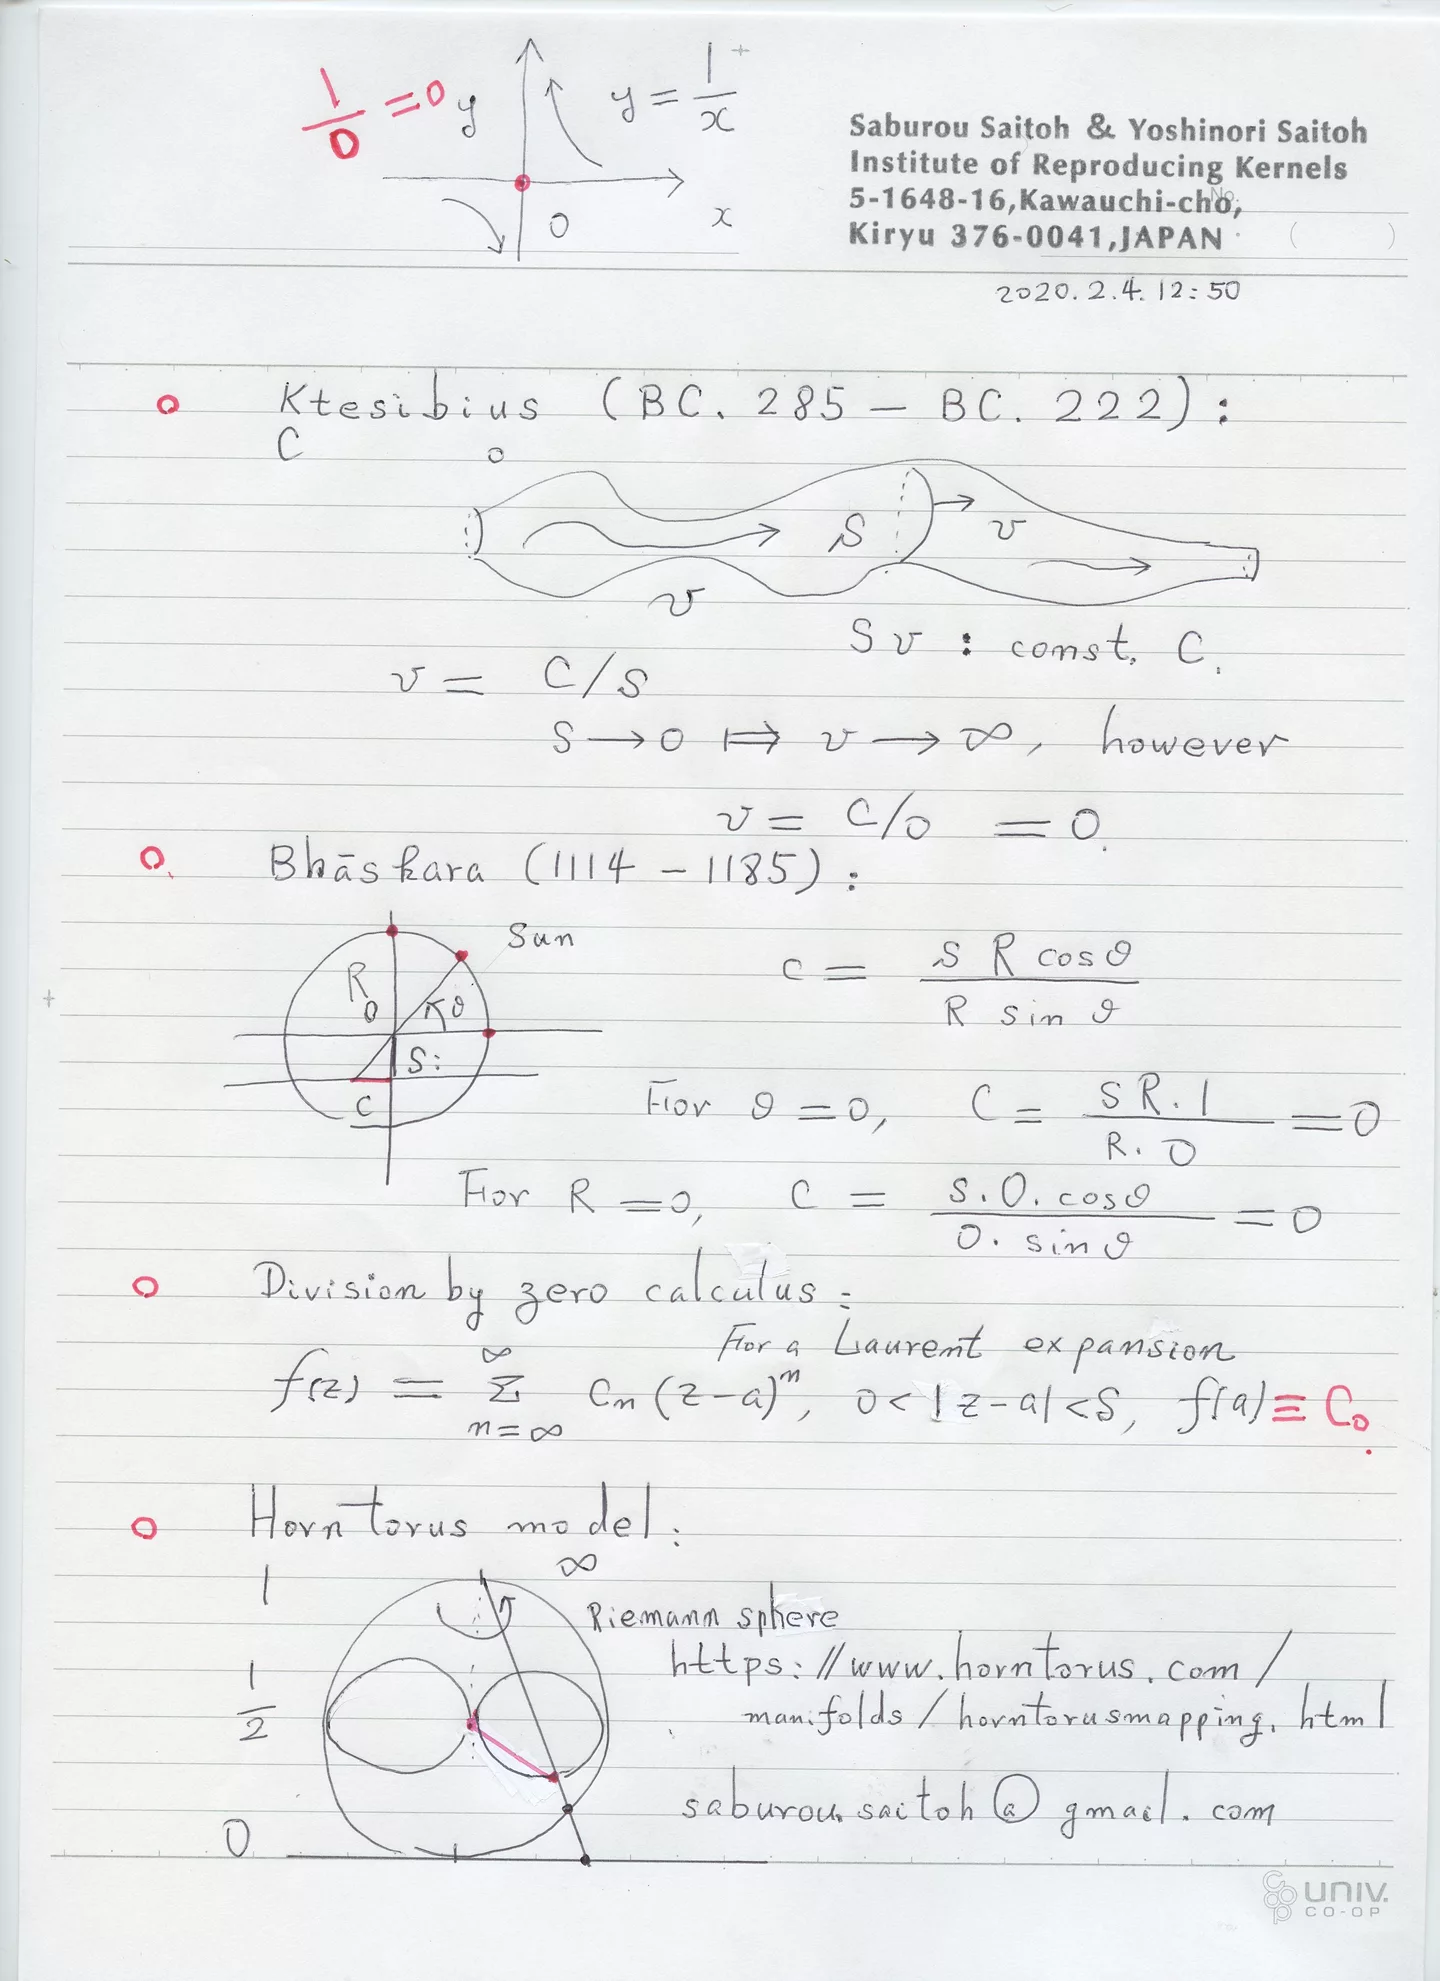 1/0 = 0
y
y = 1/x
0
x
Saburou Saitoh & Yoshinori Saitoh
Institute of Reproducing Kernels
5-1648-16,Kawauchi-cho,
Kiryu 376-0041,JAPAN
No.
( )
2020.2.4.12:50
Ktesibius (BC. 285 – BC. 222):
C o
S
v
v
Sv : const. C.
v = C/S
S → 0 ⟹ v → ∞, however
v = C/0 = 0.
Bhāskara (1114 – 1185):
Sun
R
0
θ
S:
c
c = s R cosθ / R sin θ
For θ = 0, C = S R. 1 / R. 0 = 0
For R = 0, C = S. 0. cosθ / 0. sinθ = 0
Division by zero calculus:
For a Laurent expansion
f(z) = ∞ Σ n=∞ Cn (z-a)^n, 0 < |z-a| < S, f(a) ≡ C0.
Horn Torus model:
1
∞
Riemann sphere
https://www.horntorus.com/
1/2
manifolds/horntorusmapping.html
saburou.saitoh@gmail.com
0
UNIV.
CO-OP